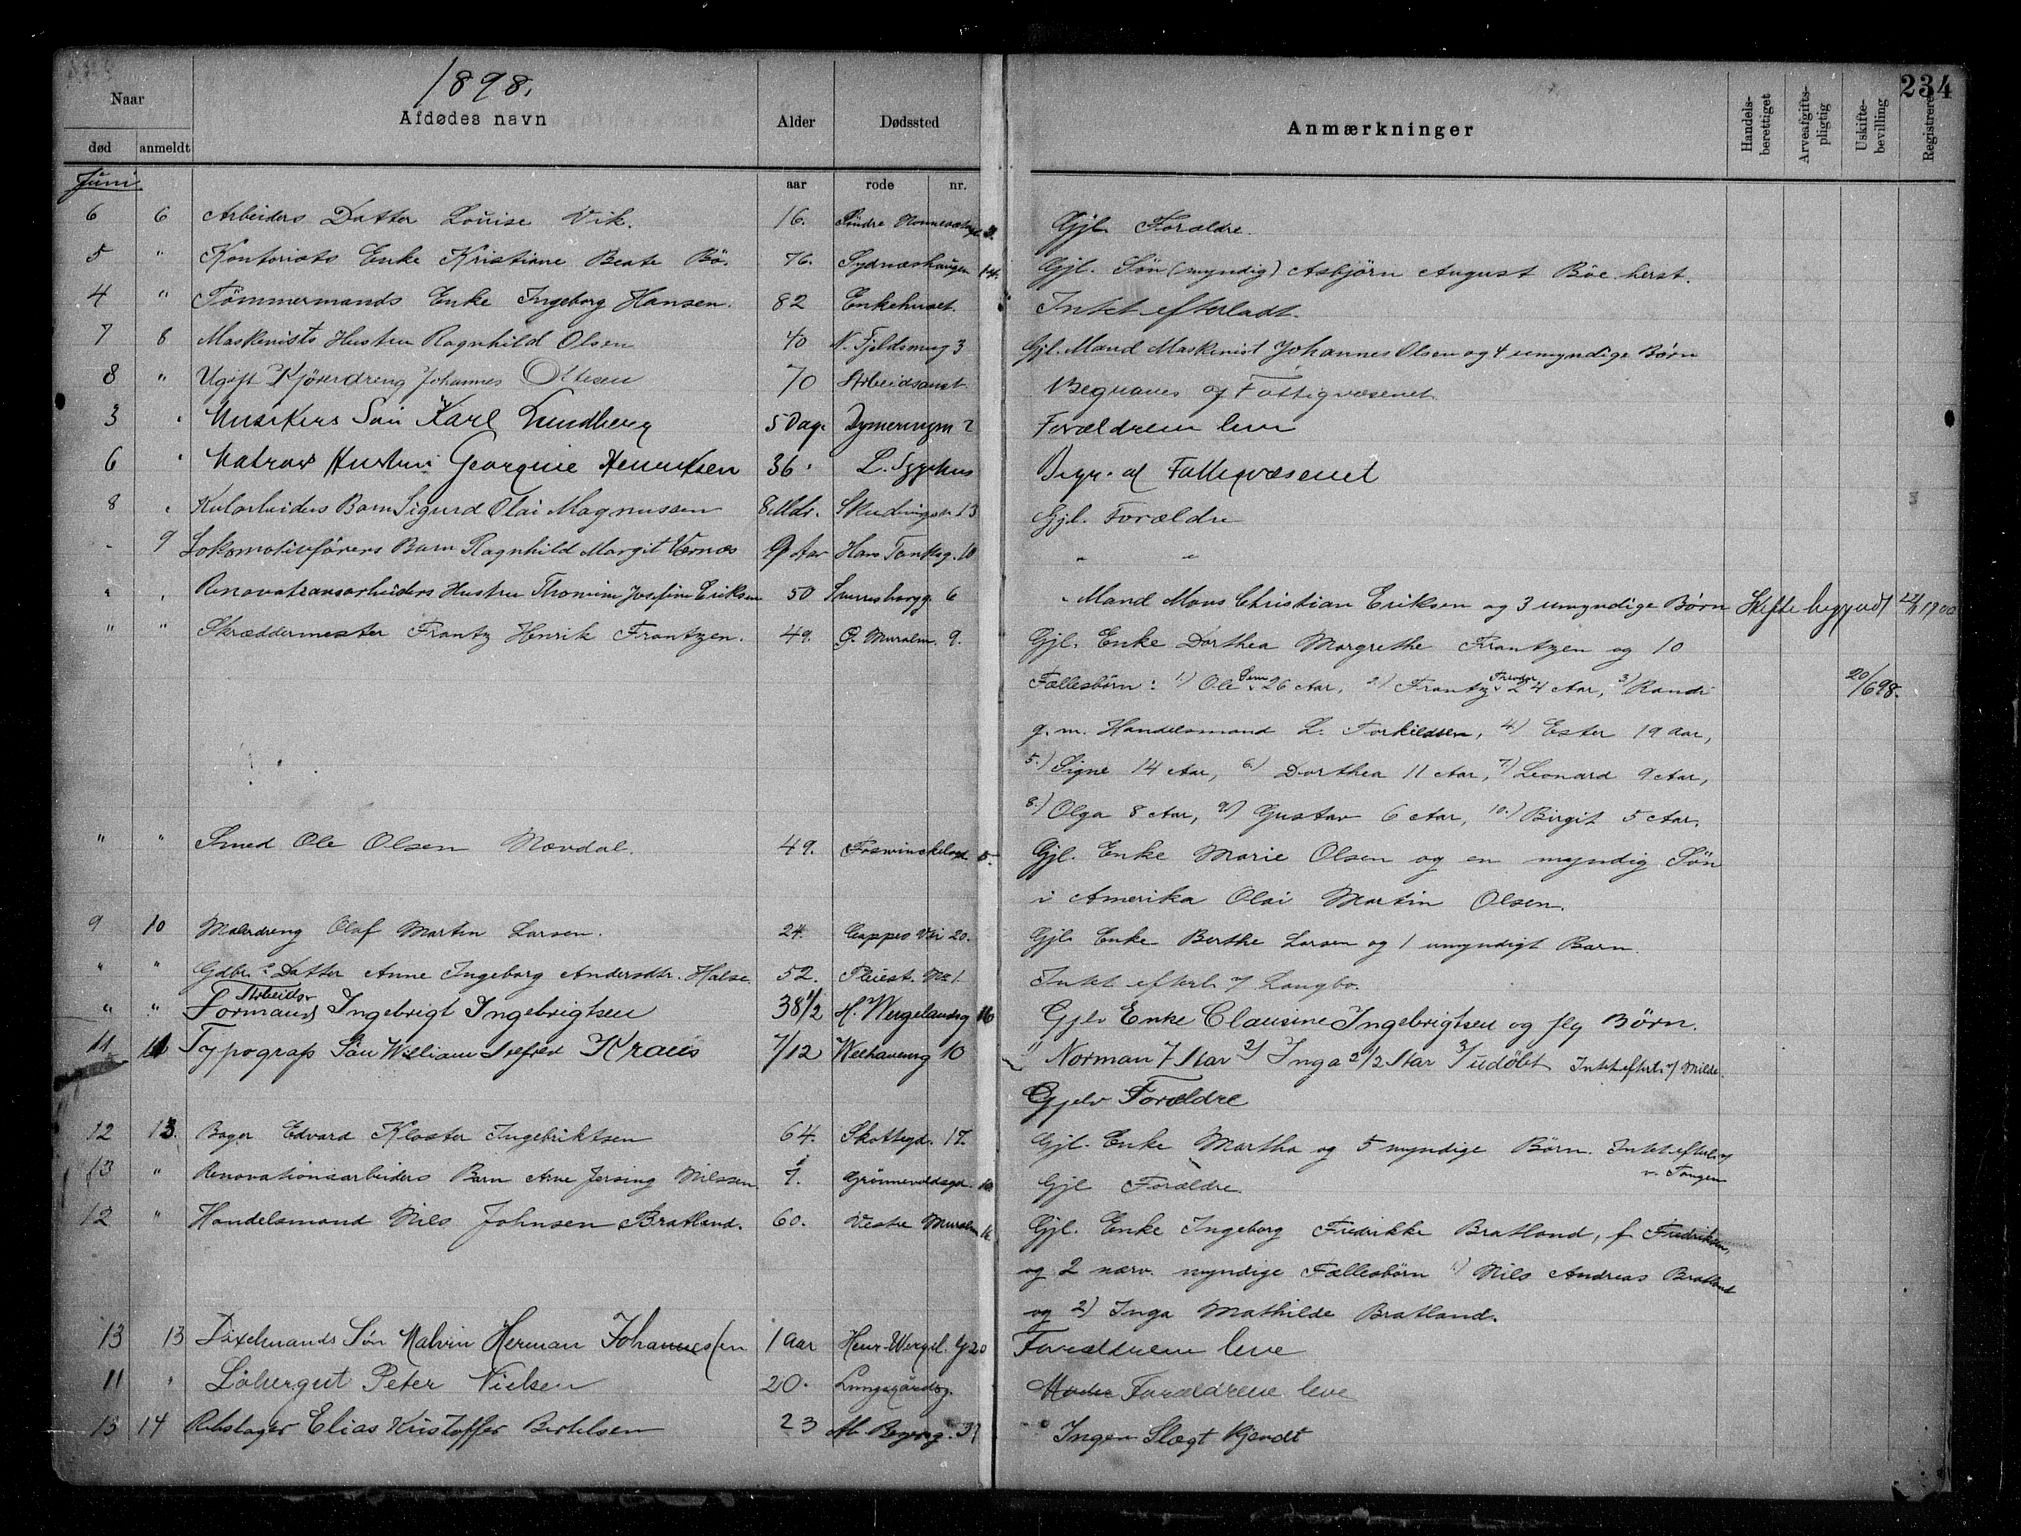 1898.
234
Naar
Afdødes navn
Alder
Dødssted
Anmærkninger
Handels-berettiget
Arveafgifts-pligtig
Uskifte-bevilling
Registreret
død
anmeldt
aar
rode
nr.
Juni
6 6 Arbeiders Datter Louise Vik. 16. Søndre 9. Gjl. Forældre.
5 " Kontorists Enke Kristiane Beate Bö. 76. Sydnæshaugen 14. Gjl. Søn (myndig) Asbjørn August Böe herst.
4 " Tømmermands Enke Ingeborg Hansen. 82 Enkehuset. Intet efterladt.
7 8 Maskinists Hustru Ragnhild Olsen 40 N. Fjeldsmug 3 Gjl. Mand Maskinist Johannes Olsen og 4 umyndige Børn
8 " Ugift Kjøreredreng Johannes Olsen 70 Arbeidsanst. Begraves af Fattigvæsenet.
3 " Musikers Søn Karl Lundberg 5 Dage 2 Forældrene leve
6 " Matros Hustru Georgine Henriksen 36. L. Sygehus Begr. af Fattigvæsenet
8 " Kularbeiders Barn Sigurd Olai Magnussen 8 Mdr. 13 Gjl. Forældre
" 9 Lokomotivførers Barn Ragnhild Margit Vernæs 9 Aar Hans Tanksg. 10 " "
" " Renovationsarbeiders Hustru Thomine Josefine Eriksen 50 Sverresborgg. 6 " Mand Mons Christian Eriksen og 3 umyndige Børn Skifte begyndt 1900
" " Skræddermester Frantz Henrik Frantzen. 49. Ø. Muralm. 9. Gjl. Enke Dorthea Margrethe Frantzen og 10
Fællesbørn: 1) Ole 26 Aar, 2) Frantz Theodor 24 Aar, 3) Randi 20/6 98.
g. m. Handelsmand L. Torkildsen, 4) Ester 19 Aar,
5) Signe 14 Aar, 6) Dorthea 11 Aar, 7) Leonard 9 Aar,
8) Olga 8 Aar, 9) Gustav 6 Aar, 10) Birgit 5 Aar.
" " Smed Ole Olsen Nævdal. 49. 5. Gjl. Enke Marie Olsen og en myndig Søn
i Amerika Olai Martin Olsen.
9 10 Malerdreng Olaf Martin Larsen. 24. Cappes Vei 20. Gjl. Enke Berthe Larsen og 1 umyndigt Barn.
" " Gdbr.s Datter Anne Ingeborg Andersdtr. Halse 52. Pleiest. No 1. Intet efterl. Langbo.
" " Arbeids Formand Ingebrigt Ingebrigtsen 38 1/2 H. Wergelandsg 16 Gjlv Enke Clausine Ingebrigtsen og flg Børn.
11 11 Typografs Søn William Alfred Kraus 7/12 Welhavensg 10 1) Norman 7 Aar 2) Inga 2 1/2 Aar 3) udøbt Intet efterl. Milde.
Gjelv Forældre
12 13. Bager Edvard Kloster Ingebriktsen 64. Skottegd. 17. Gjl. Enke Martha og 5 myndige Børn. Intet efterl. af v. Tangen
13 " Renovationsarbeiders Barn Arne Jersing Nilssen 7. Grünnevoldsgd. 10. Gjl Forældre.
12 " Handelsmand Nils Johnsen Bratland. 60. Vestre Muralm Gjl. Enke Ingeborg Fredrikke Bratland, f. Fredriksen,
og 2 nærv. myndige Fællesbørn 1) Nils Andreas Bratland
og 2) Inga Mathilde Bratland.
13 13 Søn Malvin Herman Johannessen 1 Aar Henr. Wergel. G 20 Forældrene leve
11 " Løbergut Peter Nielsen 20. Lungegårdsg. Moder Forældrene leve
13 14 Rebslager Elias Kristoffer Bertelsen 23 Ingen Slægt kjendt